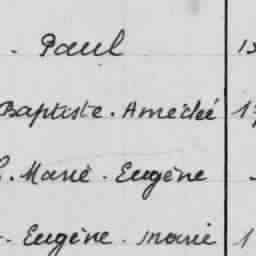 . Paul
Baptiste . Amédée
. Marie . Eugène
. Eugène . Marie